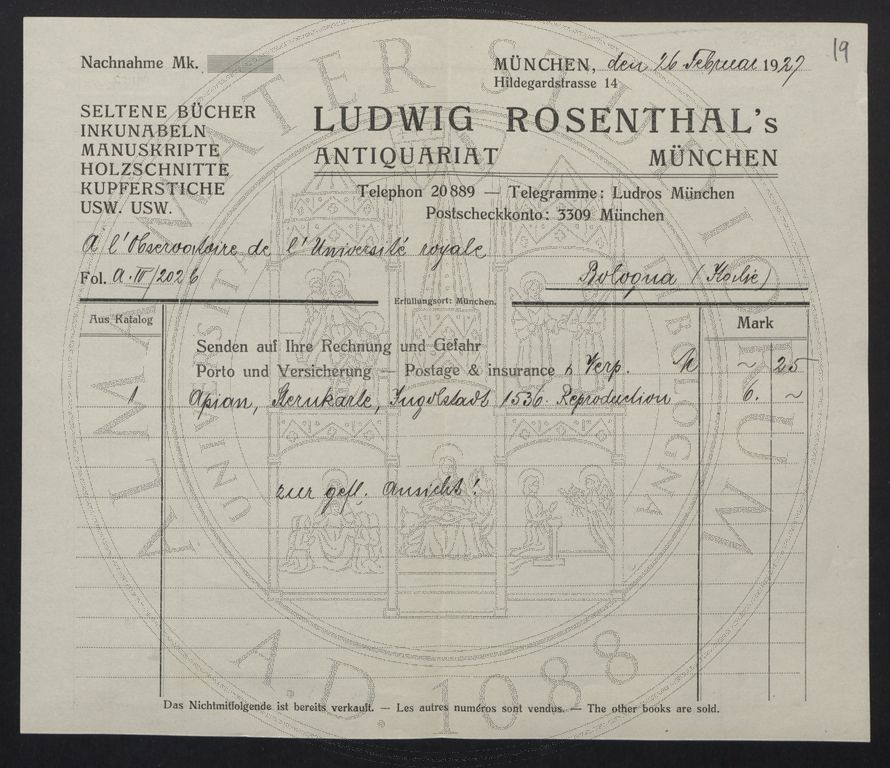 19
Nachnahme Mk.
MÜNCHEN, den 26 Februar 1927
Hildegardstrasse 14
SELTENE BÜCHER
INKUNABELN
MANUSKRIPTE
HOLZSCHNITTE
KUPFERSTICHE
USW. USW.
LUDWIG ROSENTHAL's
ANTIQUARIAT MÜNCHEN
Telephon 20889 — Telegramme: Ludros München
Postscheckkonto: 3309 München
A l'Observatoire de l'Université royale
Fol. A. III/2026
Bologna (Italie)
Erfüllungsort: München.
Aus Katalog
Mark
Senden auf Ihre Rechnung und Gefahr
Porto und Versicherung — Postage & insurance & Verp. M ~ 25
1 Apian, Sternkarte, Ingolstadt 1536. Reproduction 6. ~
zur gefl. Ansicht!
Das Nichtmitfolgende ist bereits verkauft. — Les autres numéros sont vendus. — The other books are sold.
ALMA MATER STUDIORUM
A.D. 1088
UNIVERSITÀ BOLOGNA